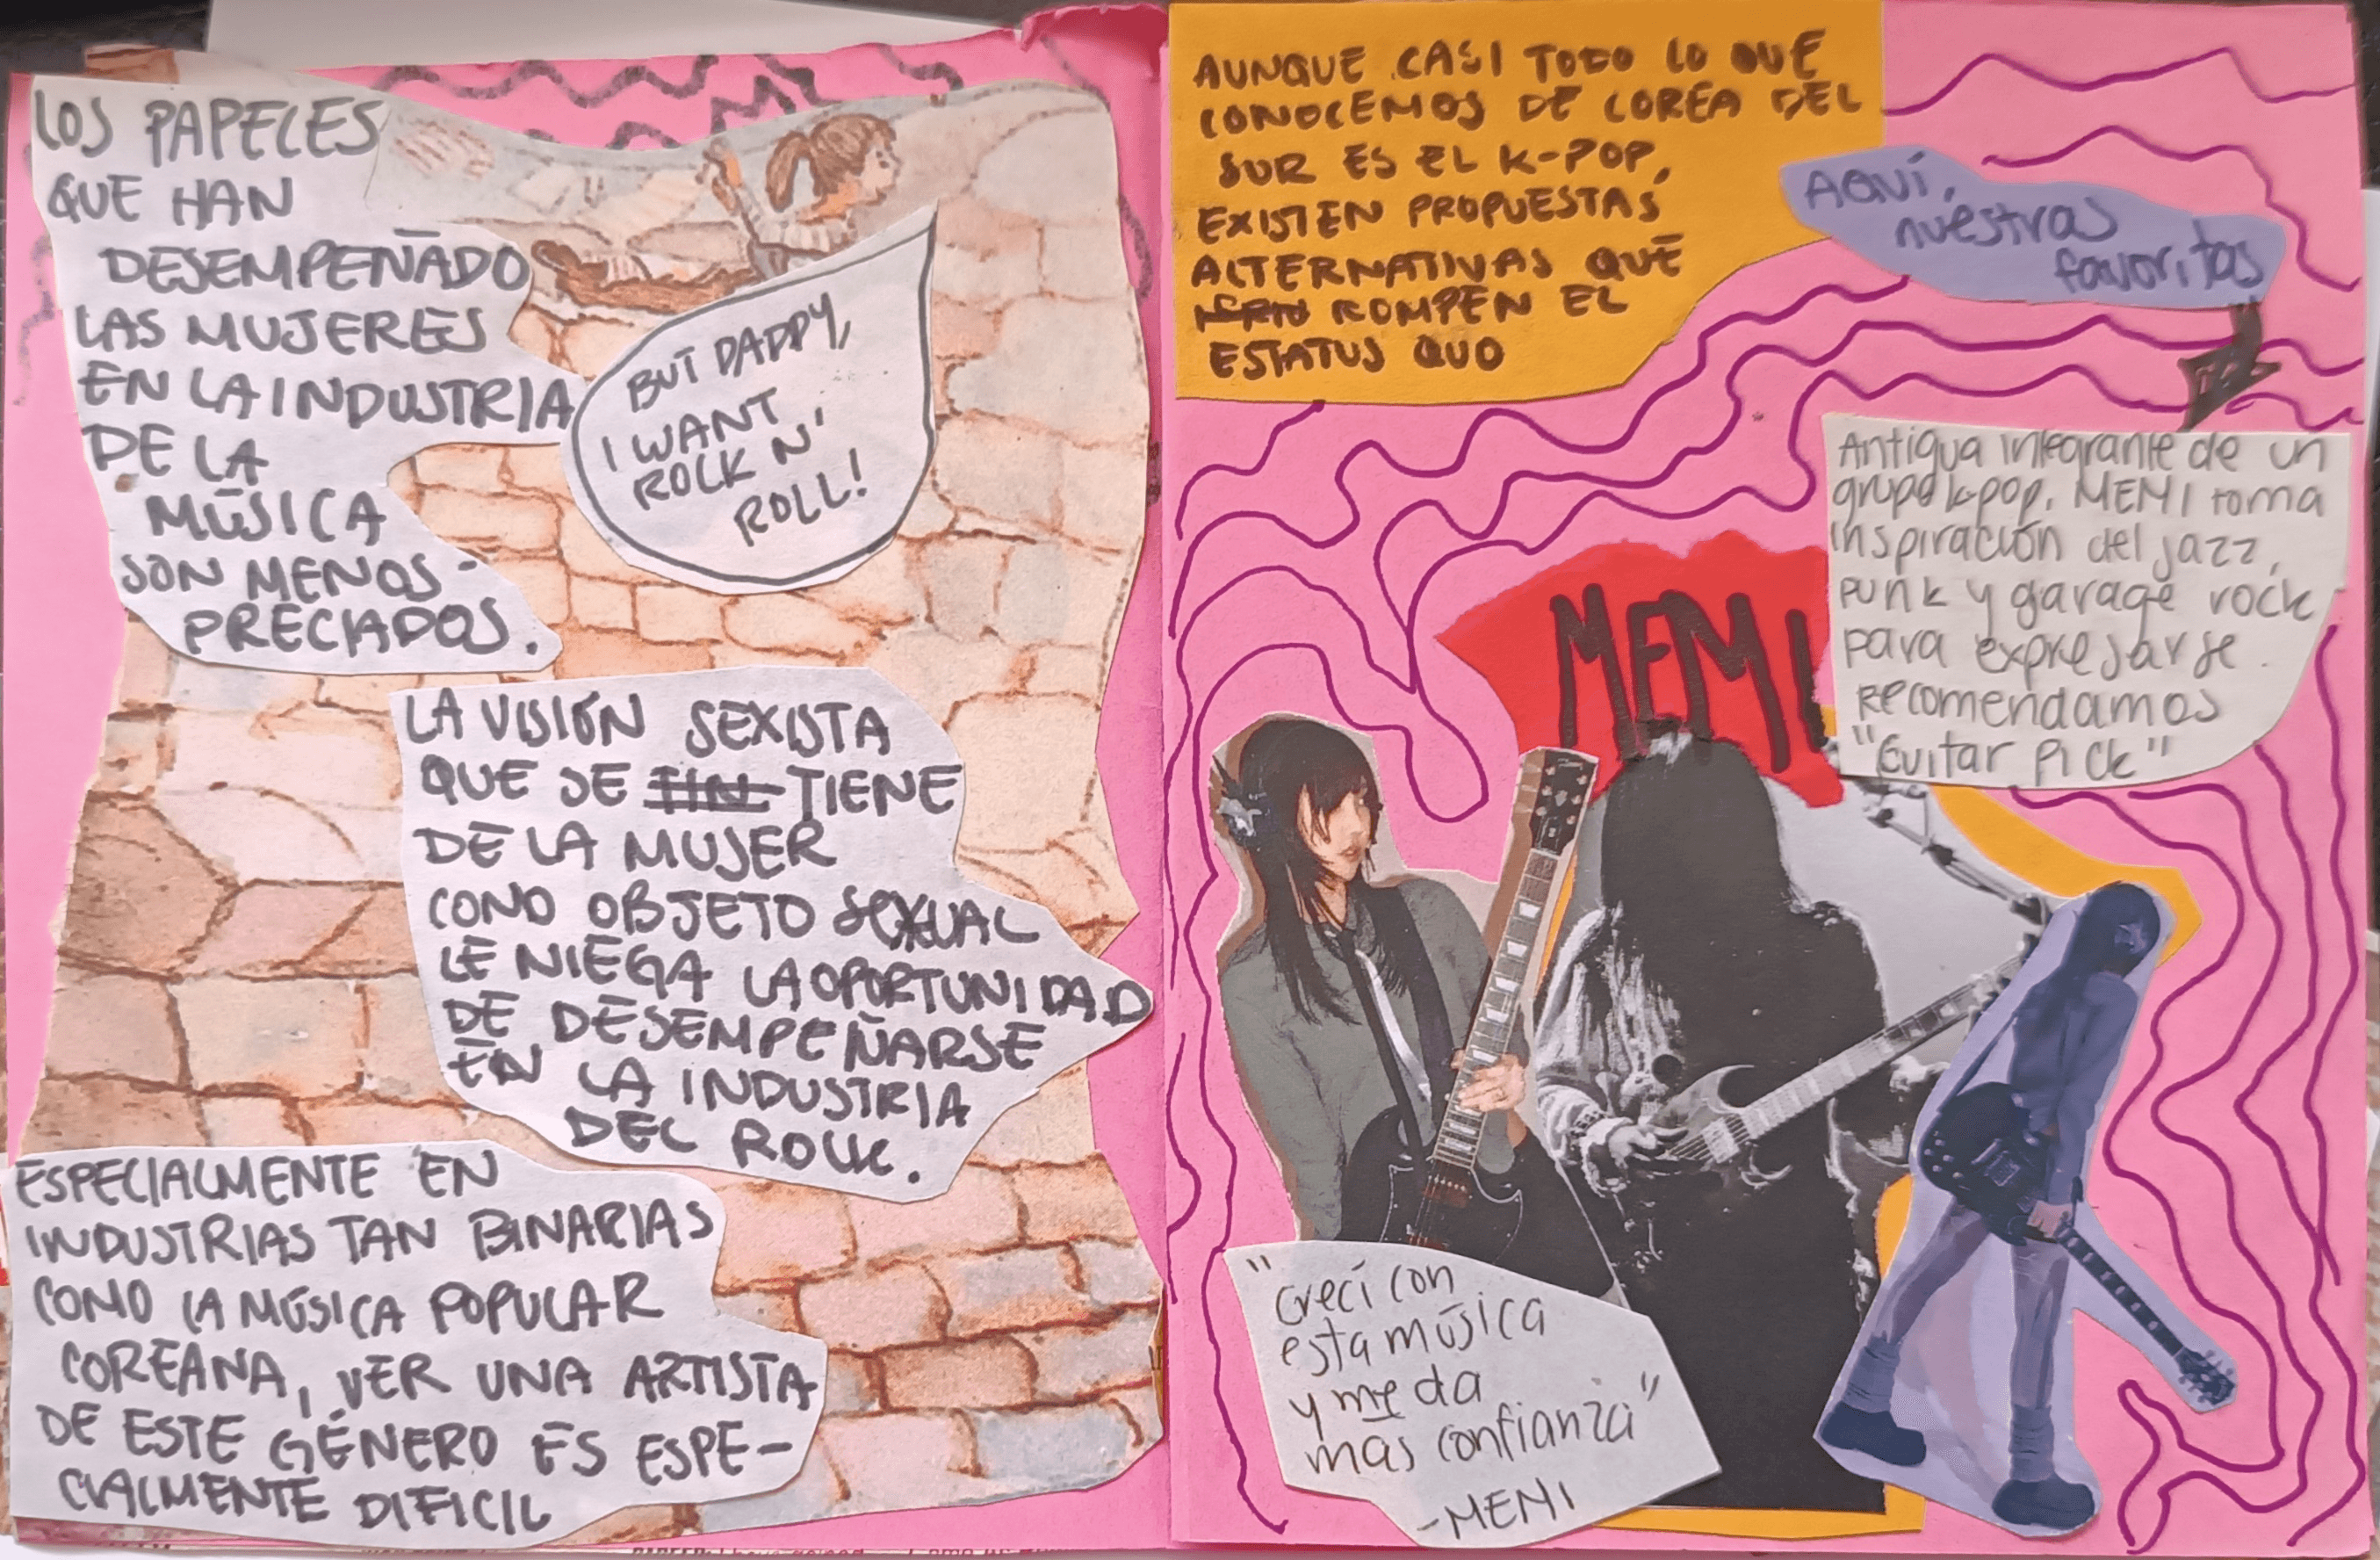 LOS PAPELES
QUE HAN
DESEMPEÑADO
LAS MUJERES
EN LA INDUSTRIA
DE LA
MÚSICA
SON MENOS-
PRECIADOS.
BUT DADDY,
I WANT
ROCK N'
ROLL!
LA VISIÓN SEXISTA
QUE SE TIENE
DE LA MUJER
COMO OBJETO SEXUAL
LE NIEGA LA OPORTUNIDAD
DE DESEMPEÑARSE
EN LA INDUSTRIA
DEL ROCK.
ESPECIALMENTE EN
INDUSTRIAS TAN BINARIAS
COMO LA MÚSICA POPULAR
COREANA, VER UNA ARTISTA
DE ESTE GÉNERO ES ESPE-
CIALMENTE DIFICIL
AUNQUE CASI TODO LO QUE
CONOCEMOS DE COREA DEL
SUR ES EL K-POP,
EXISTEN PROPUESTAS
ALTERNATIVAS QUE
ROMPEN EL
ESTATUS QUO
AQUÍ,
nuestras
favoritas
Antigua integrante de un
grupo k-pop, MEMI toma
inspiración del jazz,
punk y garage rock
para expresarse.
Recomendamos
"Guitar Pick"
MEMI
"Crecí con
esta música
y me da
mas confianza"
-MEMI